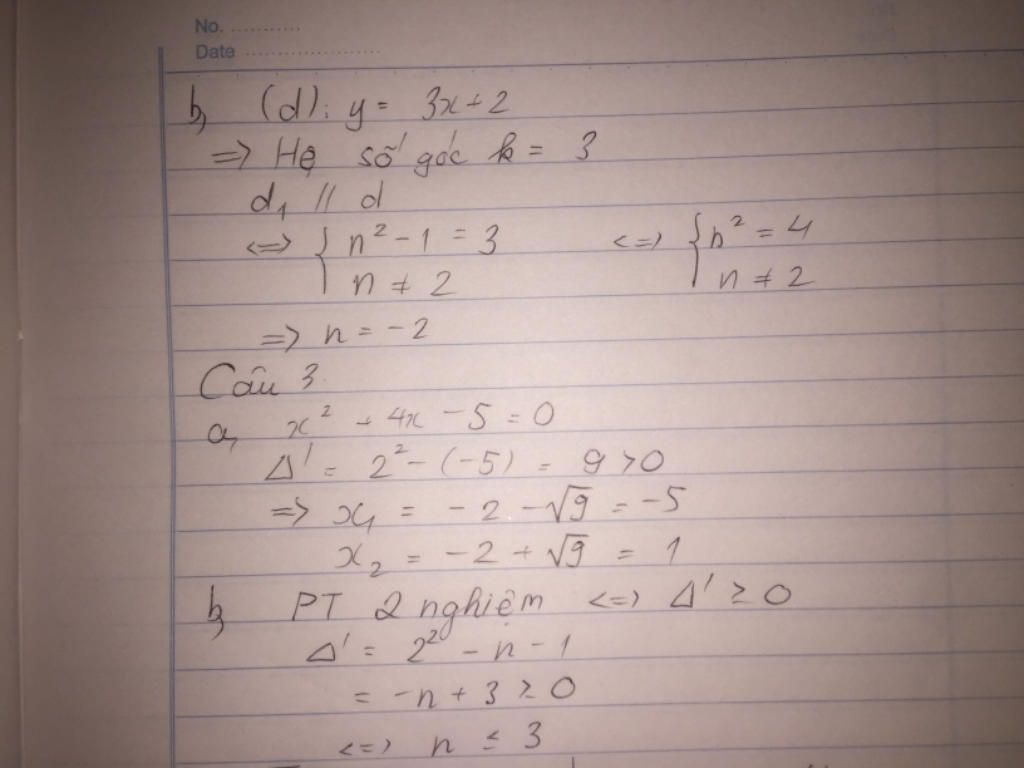 No. ...........
Date ......................
b, (d): y = 3x + 2
=> Hệ số góc k = 3
d₁ // d
<=> { n² - 1 = 3 <=> { n² = 4
n ≠ 2 n ≠ 2
=> n = -2
Câu 3
a, x² + 4x - 5 = 0
Δ' = 2² - (-5) = 9 > 0
=> x₁ = -2 - √9 = -5
x₂ = -2 + √9 = 1
b, PT 2 nghiệm <=> Δ' ≥ 0
Δ' = 2² - n - 1
= -n + 3 ≥ 0
<=> n ≤ 3